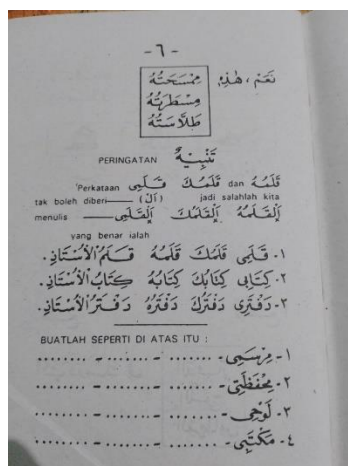 -٦-
نَعَمْ ، هٰذِهِ مِمْسَحَتُهُ
مِسْطَرَتُهُ
طَلاَّسَتُهُ
PERINGATAN تَنْبِيْهٌ
Perkataan قَلَمِى قَلَمُكَ dan قَلَمُهُ
tak boleh diberi — (اَلْ) jadi salahlah kita
menulis — اَلْقَلَمِى اَلْقَلَمُكَ اَلْقَلَمُهُ
yang benar ialah
١- قَلَمِى قَلَمُكَ قَلَمُهُ قَلَمُ الْأُسْتَاذِ.
٢- كِتَابِى كِتَابُكَ كِتَابُهُ كِتَابُ الْأُسْتَاذِ.
٣- دَفْتَرِى دَفْتَرُكَ دَفْتَرُهُ دَفْتَرُ الْأُسْتَاذِ.
BUATLAH SEPERTI DI ATAS ITU :
١- مِرْسَمِى- ........ - ........ - ........
٢- مِحْفَظَتِى- ........ - ........ - ........
٣- لَوْحِى- ........ - ........ - ........
٤- مَكْتَبِى- ........ - ........ - ........